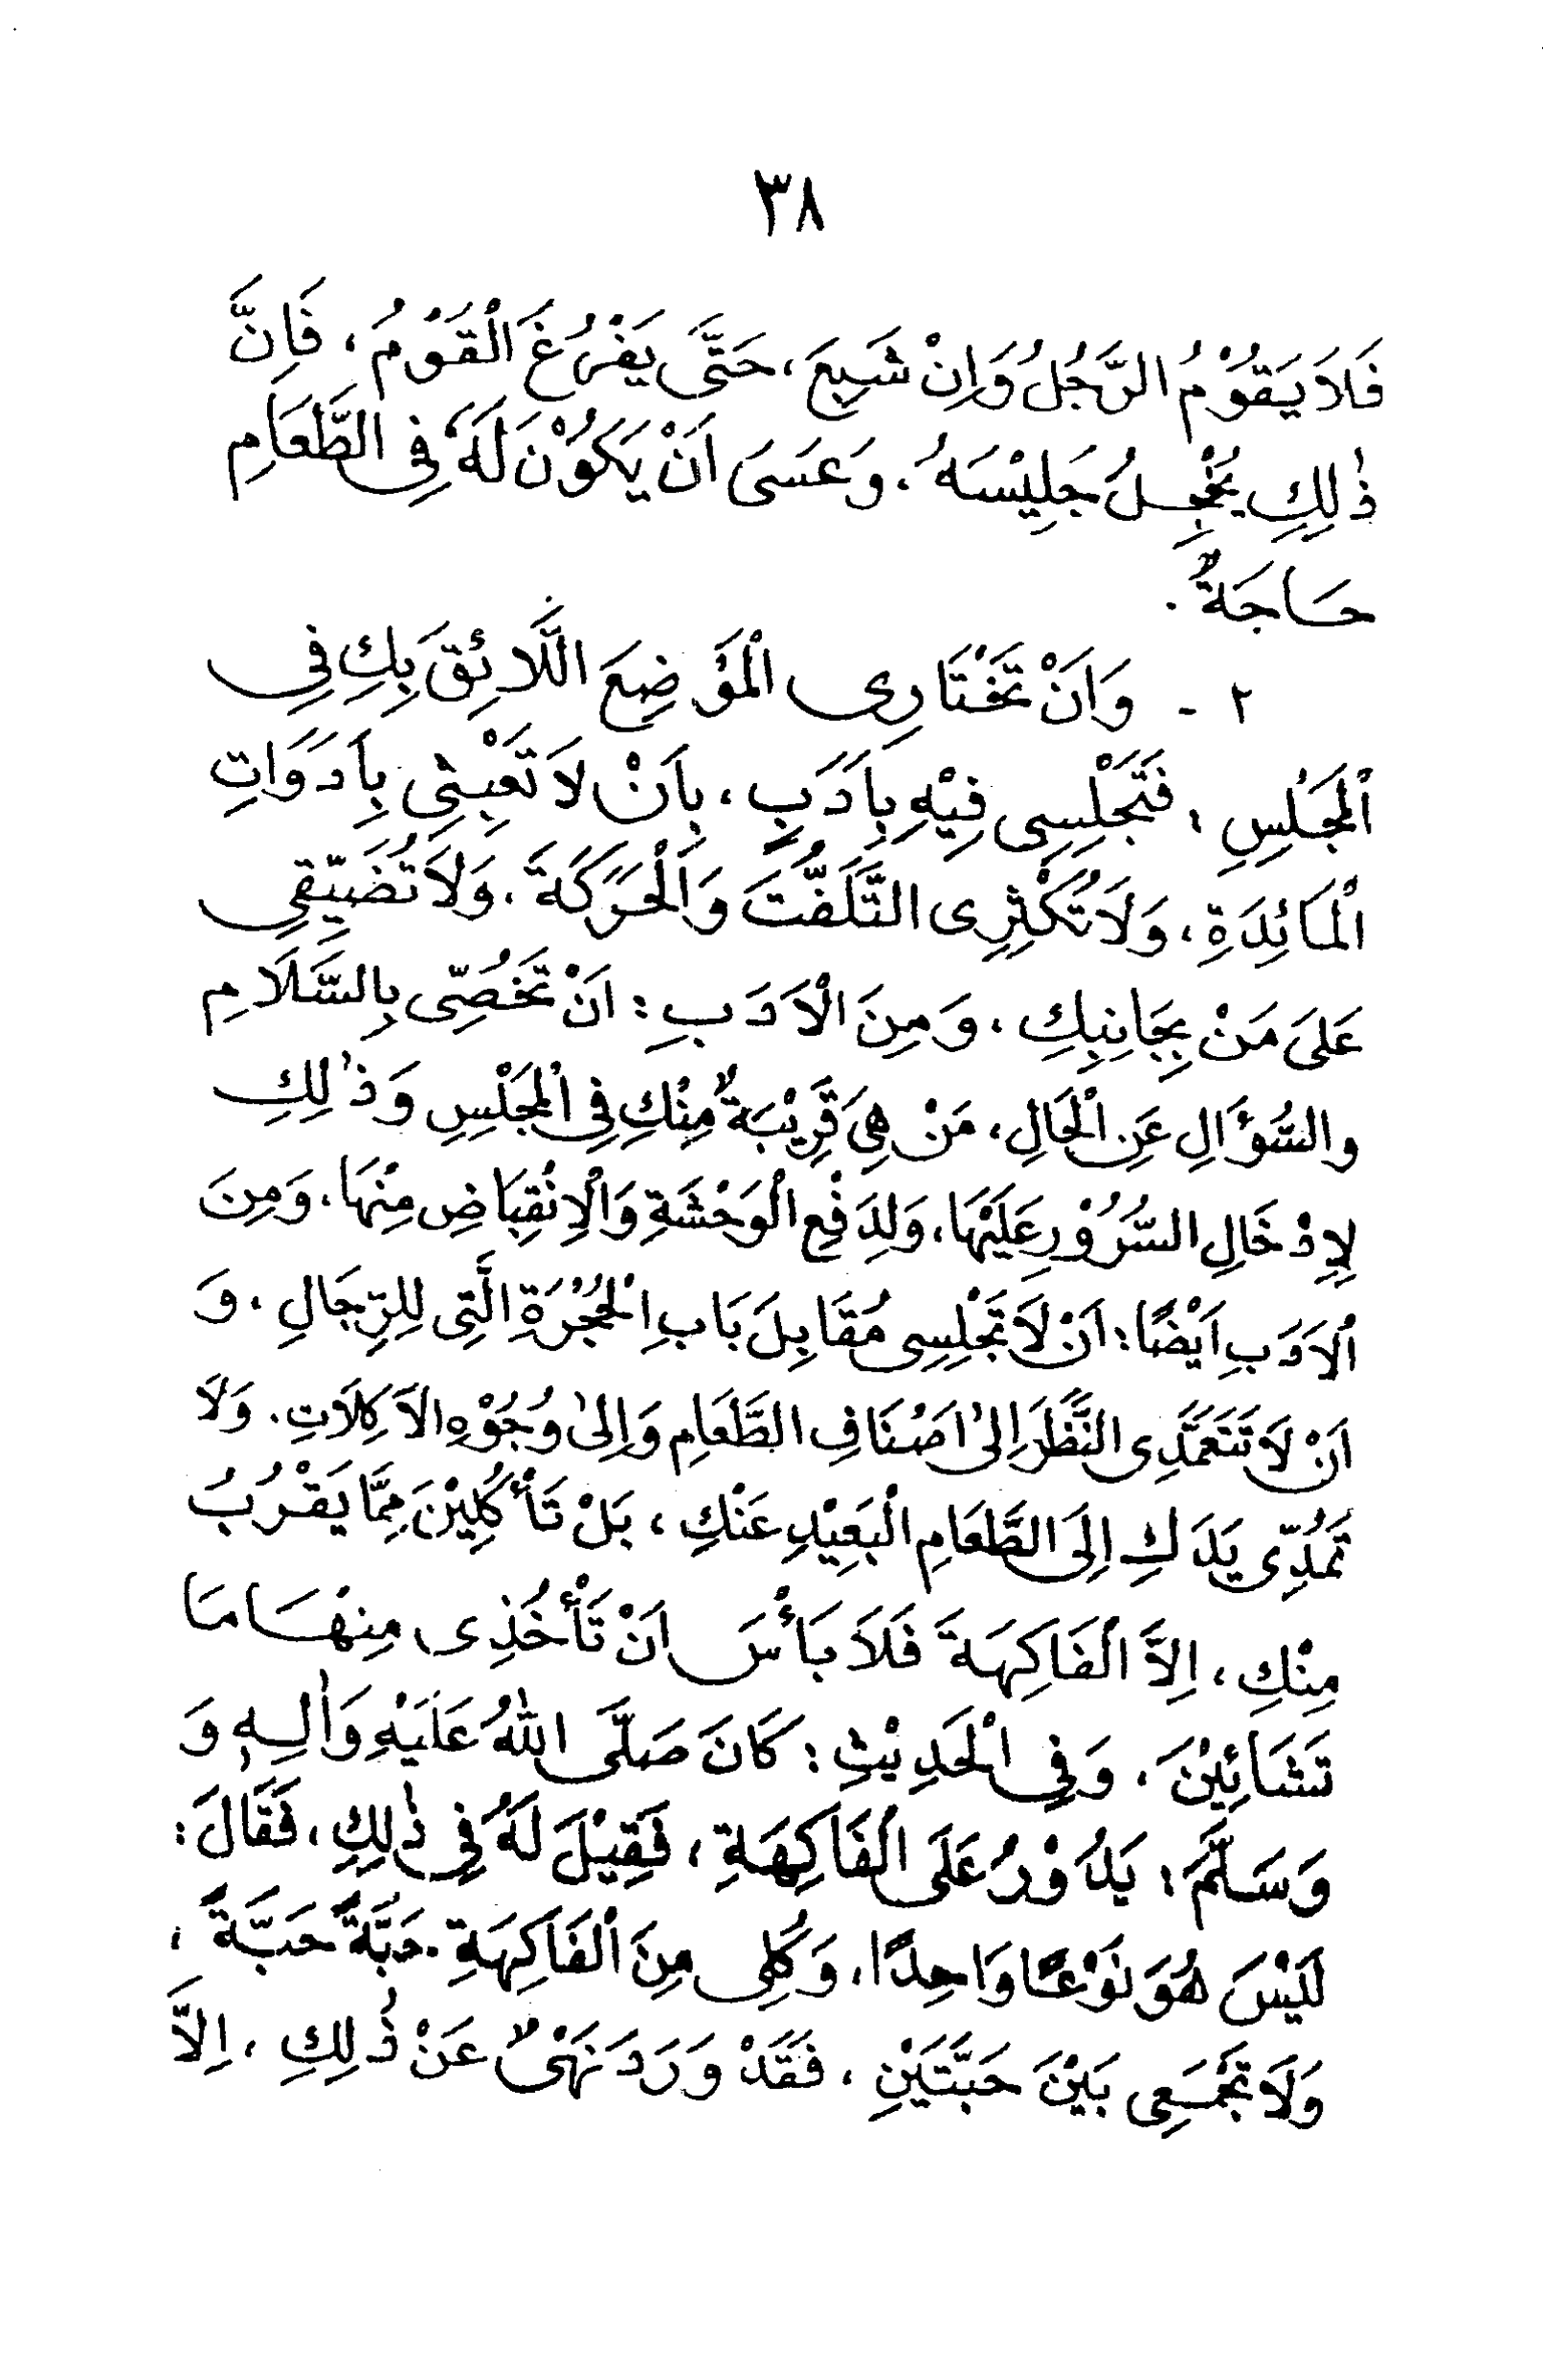 ٣٨
فَلَا يَقُوْمُ الرَّجُلُ وَاِنْ شَبِعَ، حَتَّى يَفْرُغَ الْقَوْمُ، فَاِنَّ
ذٰلِكِ يُخْجِلُ جَلِيْسَهُ، وَعَسَى اَنْ يَكُوْنَ لَهُ فِى الطَّعَامِ
حَاجَةٌ.
٢ - وَاَنْ تَخْتَارِى الْمَوْضِعَ اللَّائِقَ بِكِ فِى
الْمَجْلِسِ، فَتَجْلِسِى فِيْهِ بِاَدَبٍ، بِاَنْ لَا تَعْبَثِى بِاَدَوَاتِ
الْمَائِدَةِ، وَلَا تُكْثِرِى التَّلَفُّتَ وَالْحَرَكَةَ، وَلَا تُضَيِّقِى
عَلَى مَنْ بِجَانِبِكِ، وَمِنَ الْاَدَبِ: اَنْ تَخُصِّى بِالسَّلَامِ
والسُّؤَالِ عَنِ الْحَالِ، مَنْ هِيَ قَرِيْبَةٌ مِنْكِ فِى الْمَجْلِسِ وَذٰلِكِ
لِاِدْخَالِ السُّرُوْرِ عَلَيْهَا، وَلِدَفْعِ الْوَحْشَةِ وَالْاِنْقِبَاضِ مِنْهَا، وَمِنَ
الْاَدَبِ اَيْضًا: اَنْ لَا تَجْلِسِى مُقَابِلَ بَابِ الْحُجْرَةِ الَّتِى لِلرِّجَالِ، وَ
اَنْ لَا تَتَعَمَّدِى النَّظَرَ اِلىٰ اَصْنَافِ الطَّعَامِ وَاِلىٰ وُجُوْهِ الْاٰكِلَاتِ، وَلَا
تَمُدِّى يَدَكِ اِلَى الطَّعَامِ الْبَعِيْدِ عَنْكِ، بَلْ تَأْكُلِيْنَ مِمَّا يَقْرُبُ
مِنْكِ، اِلَّا الْفَاكِهَةَ فَلَا بَأْسَ اَنْ تَأْخُذِى مِنْهَا مَا
تَشَائِيْنَ، وَفِى الْحَدِيْثِ: كَانَ صَلَّى اللهُ عَلَيْهِ وَاٰلِهِ وَ
وَسَلَّمَ: يَدُوْرُ عَلَى الْفَاكِهَةِ، فَقِيْلَ لَهُ فِى ذٰلِكِ، فَقَالَ:
لَيْسَ هُوَ نَوْعًا وَاحِدًا، وَكُلِى مِنَ الْفَاكِهَةِ حَبَّةً حَبَّةً،
وَلَا تَجْمَعِى بَيْنَ حَبَّتَيْنِ، فَقَدْ وَرَدَ نَهْىٌ عَنْ ذٰلِكِ، اِلَّا